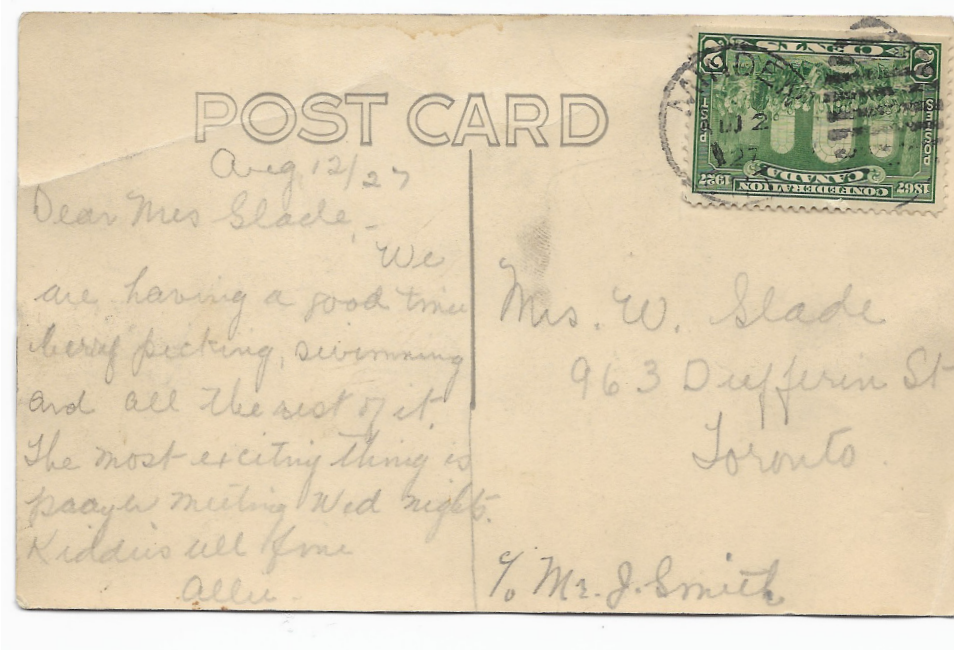 POST CARD
Aug 12/27
Dear Mrs Slade,-
We
are having a good time
berry picking, swimming
and all the rest of it.
The most exciting thing is
praayer meeting Wed nights.
Kiddies all fine
Allie.
Mrs. W. Slade
963 Dufferin St
Toronto.
c/o Mr. J. Smith
2 CENTS 2
POSTES
POST
CANADA
1867 CONFEDERATION 1927
27